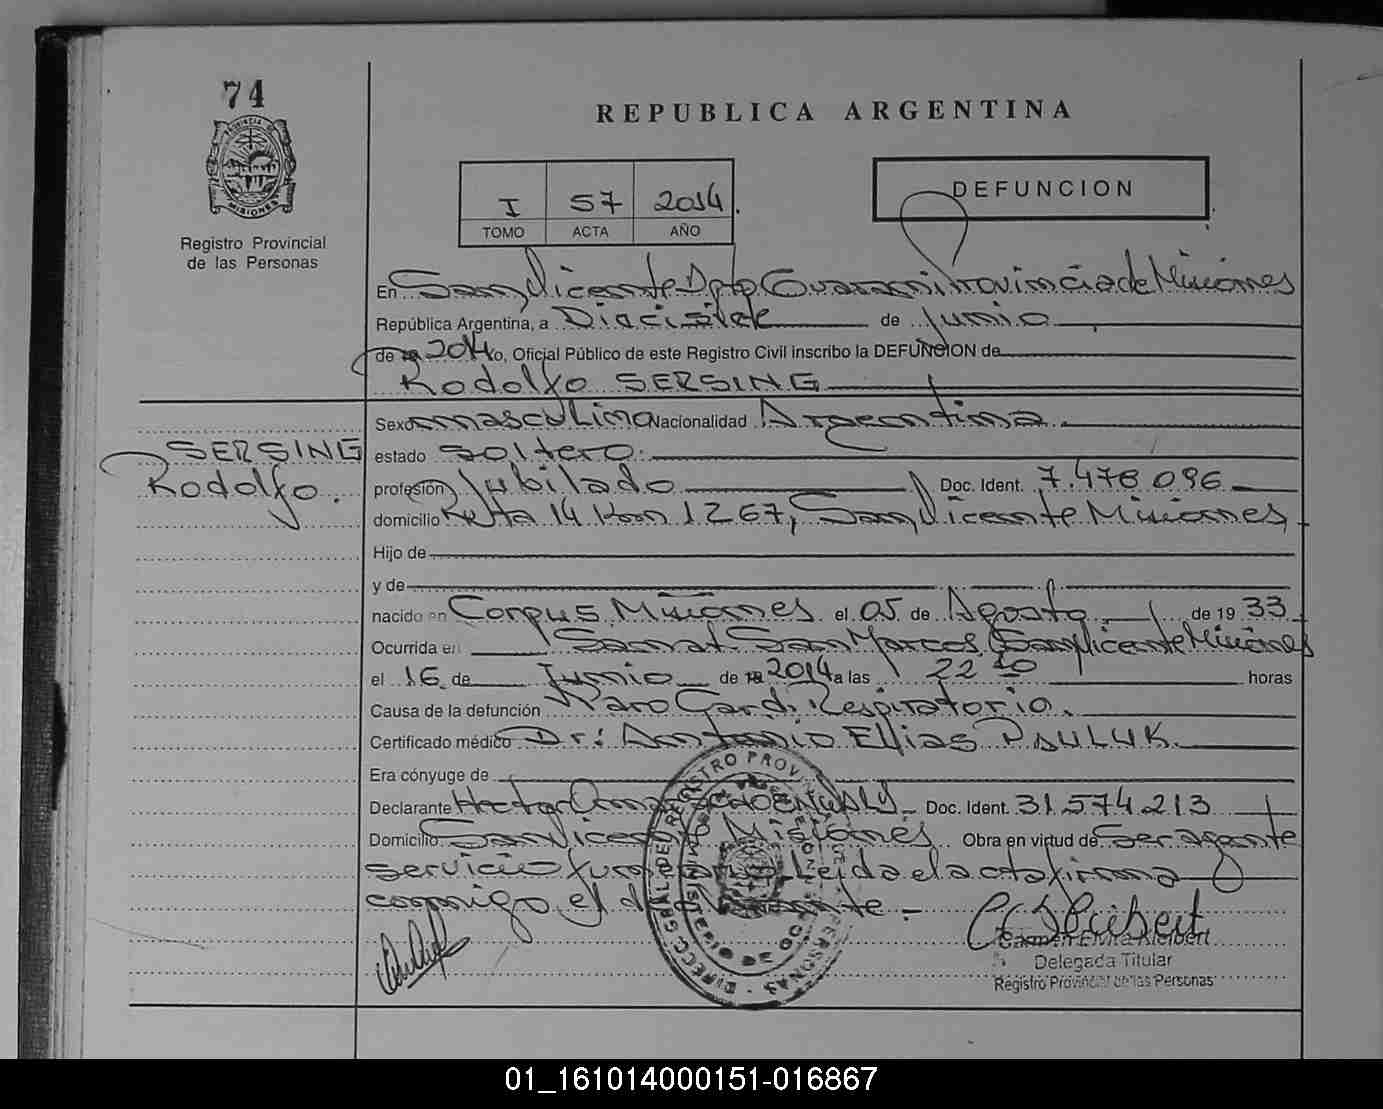 74
PROVINCIA DE
MISIONES
Registro Provincial
de las Personas
REPUBLICA ARGENTINA
I 57 2014
TOMO ACTA AÑO
DEFUNCION
En San Vicente Dpto Guarani Provincia de Misiones
República Argentina, a Diecisiete de Junio
de 2014 yo, Oficial Público de este Registro Civil inscribo la DEFUNCION de
Rodolfo SERSING
SERSING
Rodolfo.
Sexo masculino Nacionalidad Argentina
estado soltero.
profesión Jubilado Doc. Ident. 7.478.096
domicilio Ruta 14 Km 1267, San Vicente Misiones
Hijo de
y de
nacido en Corpus Misiones el 05 de Agosto de 1933
Ocurrida en Sanat. San Marcos San Vicente Misiones
el 16 de Junio de 2014 a las 22 horas
Causa de la defunción Paro Card. Respiratorio.
Certificado médico Dr: Antonio Elias PAULUK
Era cónyuge de
Declarante Hector Omar Doc. Ident. 31.574.213
Domicilio San Vicente Misiones Obra en virtud de Ser agente
servicio funerario. Leida el acta firma
conmigo el declarante -
Carmen Elvira Kleibert
Delegada Titular
Registro Provincial de las Personas
01_161014000151-016867